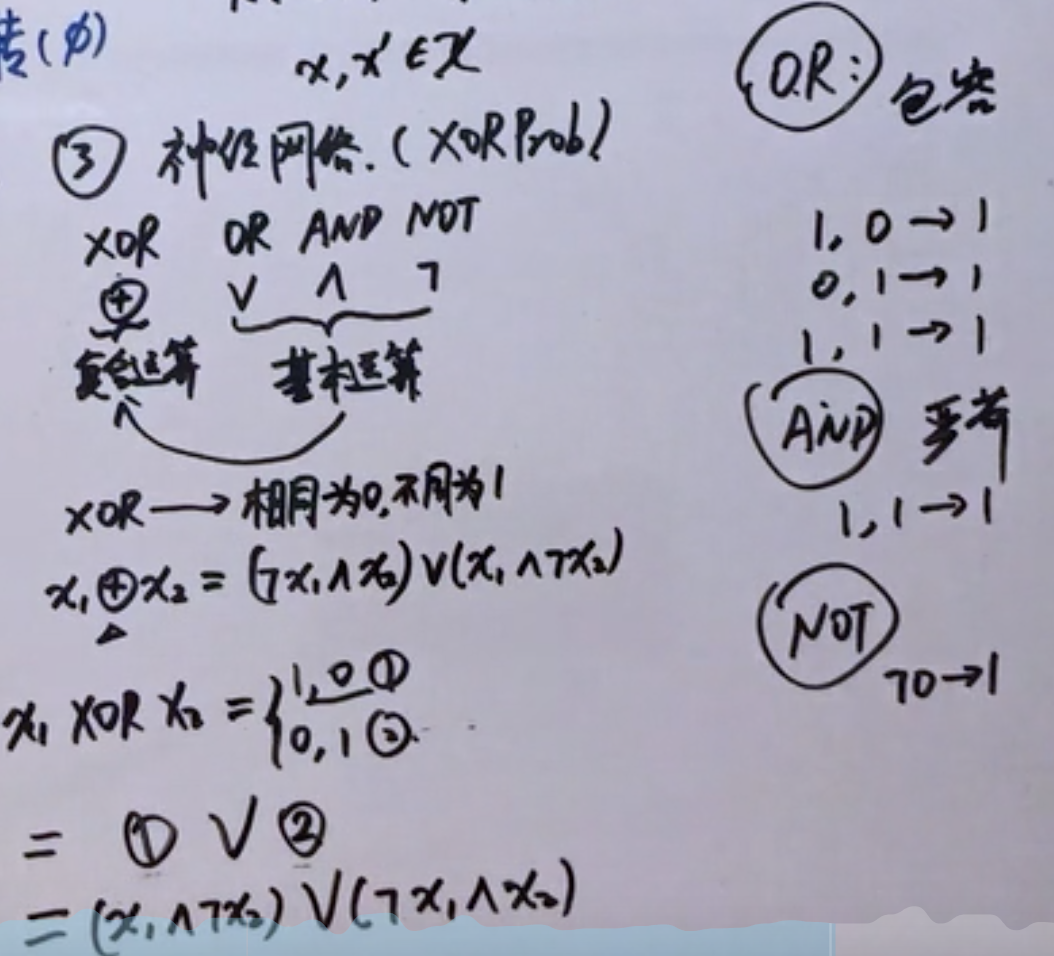 转(φ)
x, x' ∈ X
③ 神经网络.(XOR Prob)
XOR OR AND NOT
⊕ ∨ ∧ ¬
复合运算 基本运算
XOR → 相同为0,不同为1
x₁⊕x₂ = (¬x₁∧x₂)∨(x₁∧¬x₂)
x₁ XOR x₂ = { 1,0 ①
0,1 ②
= ① ∨ ②
= (x₁∧¬x₂) ∨(¬x₁∧x₂)
OR: 包容
1, 0 → 1
0, 1 → 1
1, 1 → 1
AND 严苛
1, 1 → 1
NOT
¬0→1